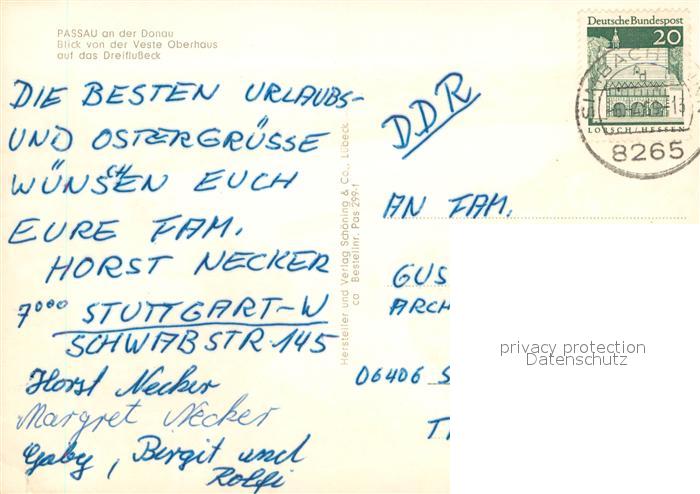 PASSAU an der Donau
Blick von der Veste Oberhaus
auf das Dreiflußeck
DIE BESTEN URLAUBS-
UND OSTERGRÜSSE
WÜNSCHEN EUCH
EURE FAM.
HORST NECKER
7000 STUTTGART-W
SCHWABSTR. 145
Horst Necker
Margret Necker
Gaby, Birgit und
Rolfi
Hersteller und Verlag Schöning & Co., Lübeck
Bestellnr. Pas 299-1
Deutsche Bundespost
20
LORSCH/HESSEN
8265
DDR
AN FAM.
GUS
ARCH
06406 S
privacy protection
Datenschutz